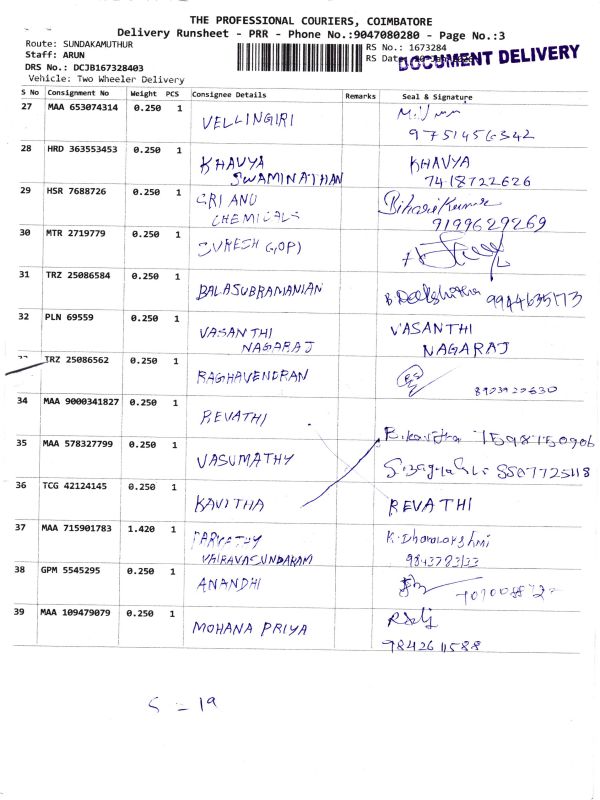 THE PROFESSIONAL COURIERS, COIMBATORE
Delivery Runsheet - PRR - Phone No.:9047080280 - Page No.:3
Route: SUNDAKAMUTHUR
RS No.: 1673284
Staff: ARUN
RS Date:
DOCUMENT DELIVERY
DRS No.: DCJB167328403
Vehicle: Two Wheeler Delivery
S No Consignment No Weight PCS Consignee Details Remarks Seal & Signature
27 MAA 653074314 0.250 1 VELLINGIRI
9751456342
28 HRD 363553453 0.250 1 KHAVYA KHAVYA
SWAMINATHAN 7418722626
29 HSR 7688726 0.250 1 SRI ANU Bihari Kumar
CHEMICALS 9199629269
30 MTR 2719779 0.250 1 SURESH GOPI
31 TRZ 25086584 0.250 1 BALASUBRAMANIAN
32 PLN 69559 0.250 1 VASANTHI VASANTHI
NAGARAJ NAGARAJ
TRZ 25086562 0.250 1 RAGHAVENDRAN
34 MAA 9000341827 0.250 1 REVATHI
35 MAA 578327799 0.250 1 VASUMATHY
36 TCG 42124145 0.250 1 KAVITHA REVATHI
37 MAA 715901783 1.420 1 K. Dhanalakshmi
VAIRAVASUNDARAM
38 GPM 5545295 0.250 1 ANANDHI
39 MAA 109479079 0.250 1 MOHANA PRIYA
9842611588
S = 19